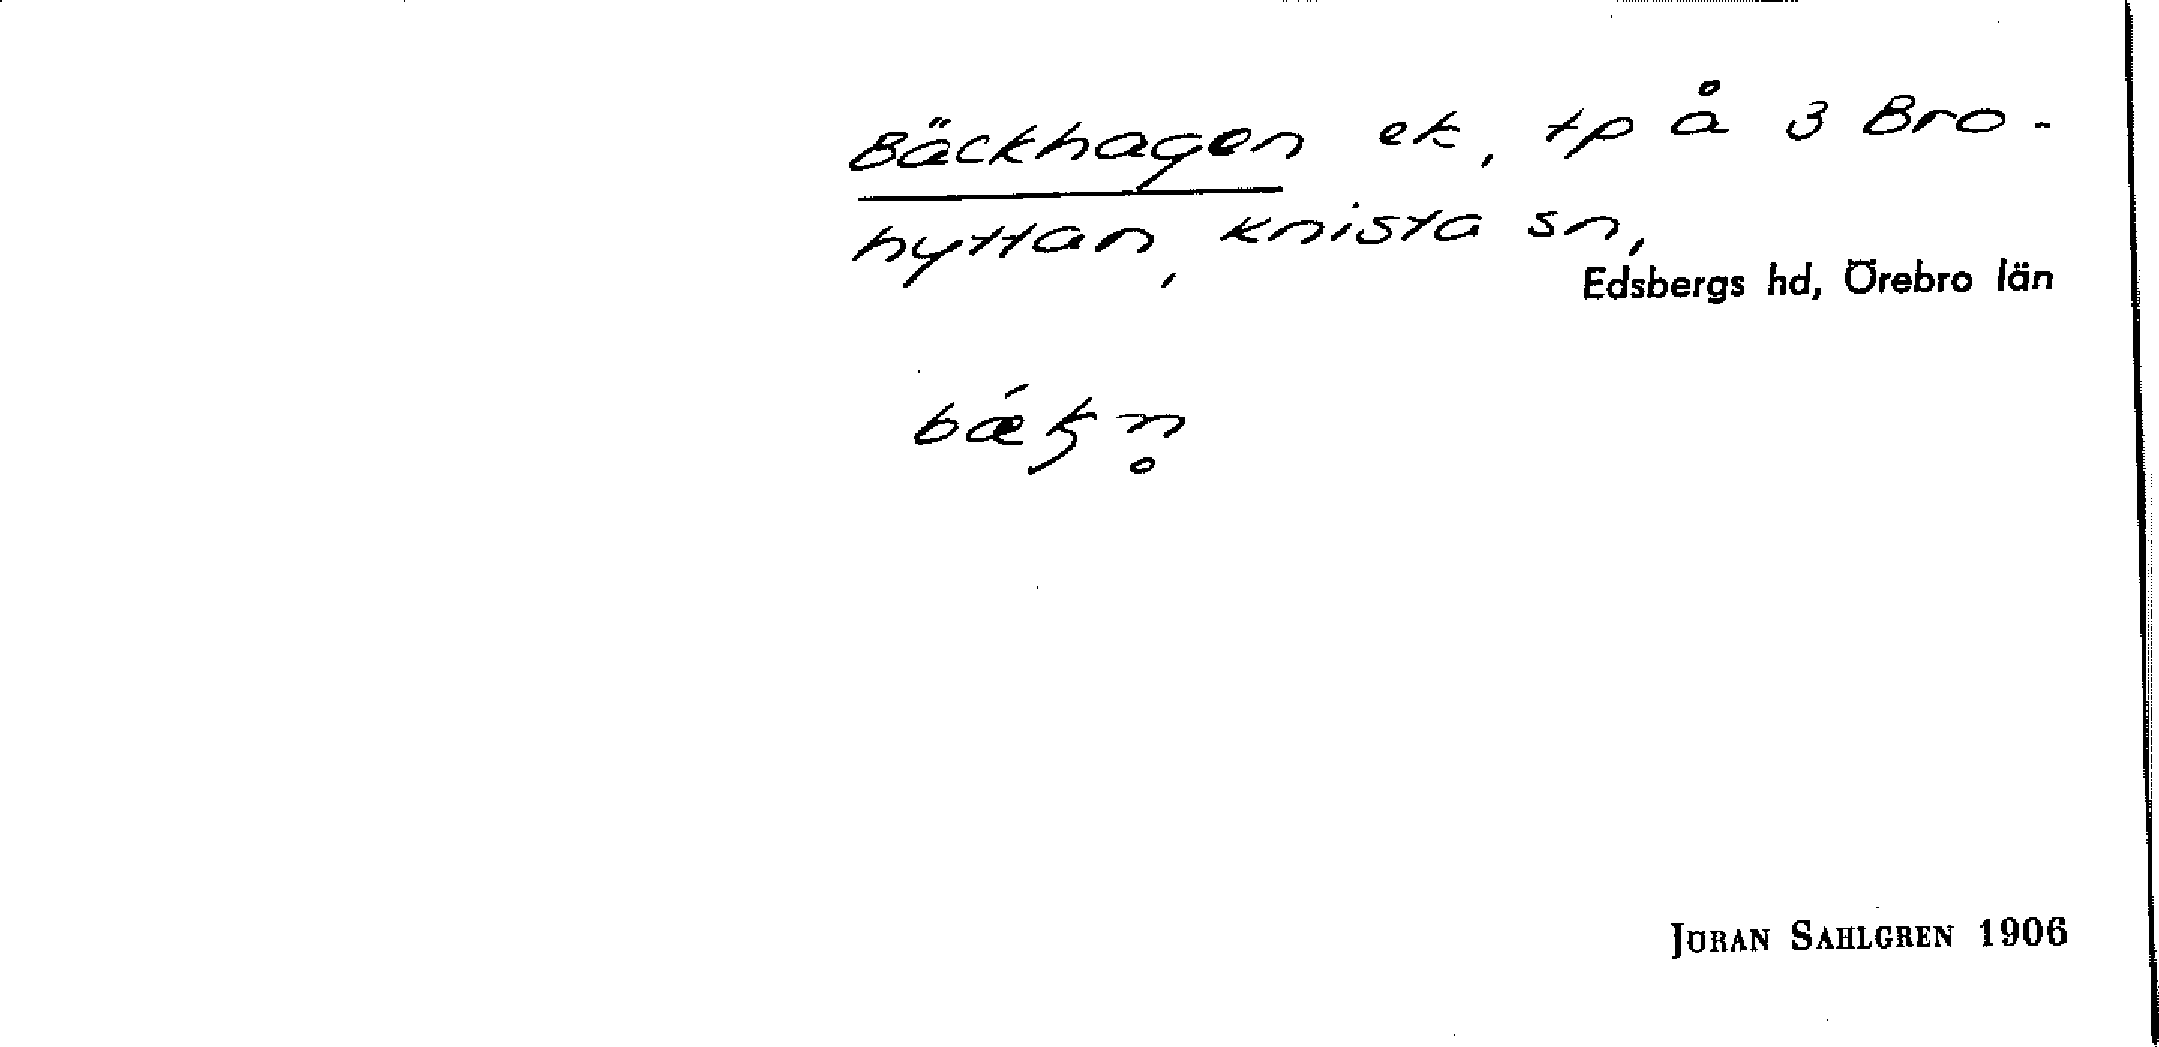 Bäckhagen ek, tp å 3 Bro-
hyttan, Knista sn,
Edsbergs hd, Örebro län
bǽꝁn̥
JÖRAN SAHLGREN 1906